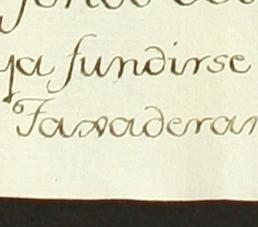 ya fundirse
Taxaderan